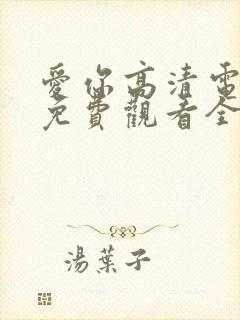 愛你高清電
免費觀看全
湯葉子